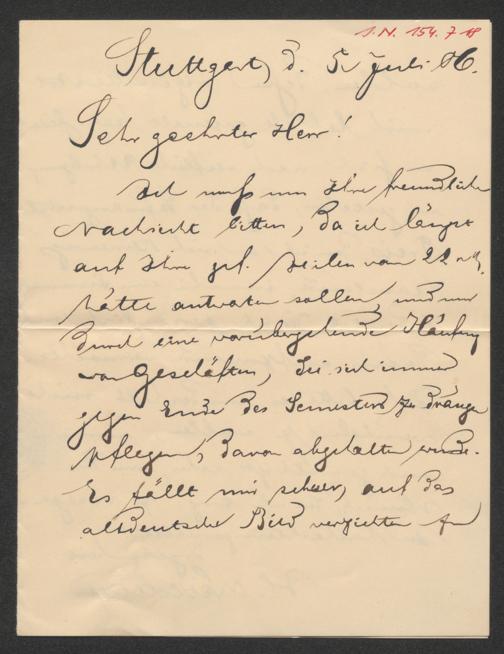 J.N. 154.718
Stuttgart, d. 5. Juli 86.
Sehr geehrter Herr!
Ich muß um Ihre freundliche
Nachsicht bitten, da ich längst
auf Ihre gef. Zeilen vom 22. v. M.
hätte antworten sollen, und nur
durch eine vorübergehende Häufung
von Geschäften, die sich immer
gegen Ende des Semesters zu drängen
pflegen, davon abgehalten wurde.
Es fällt mir schwer, auf das
altdeutsche Bild verzichten